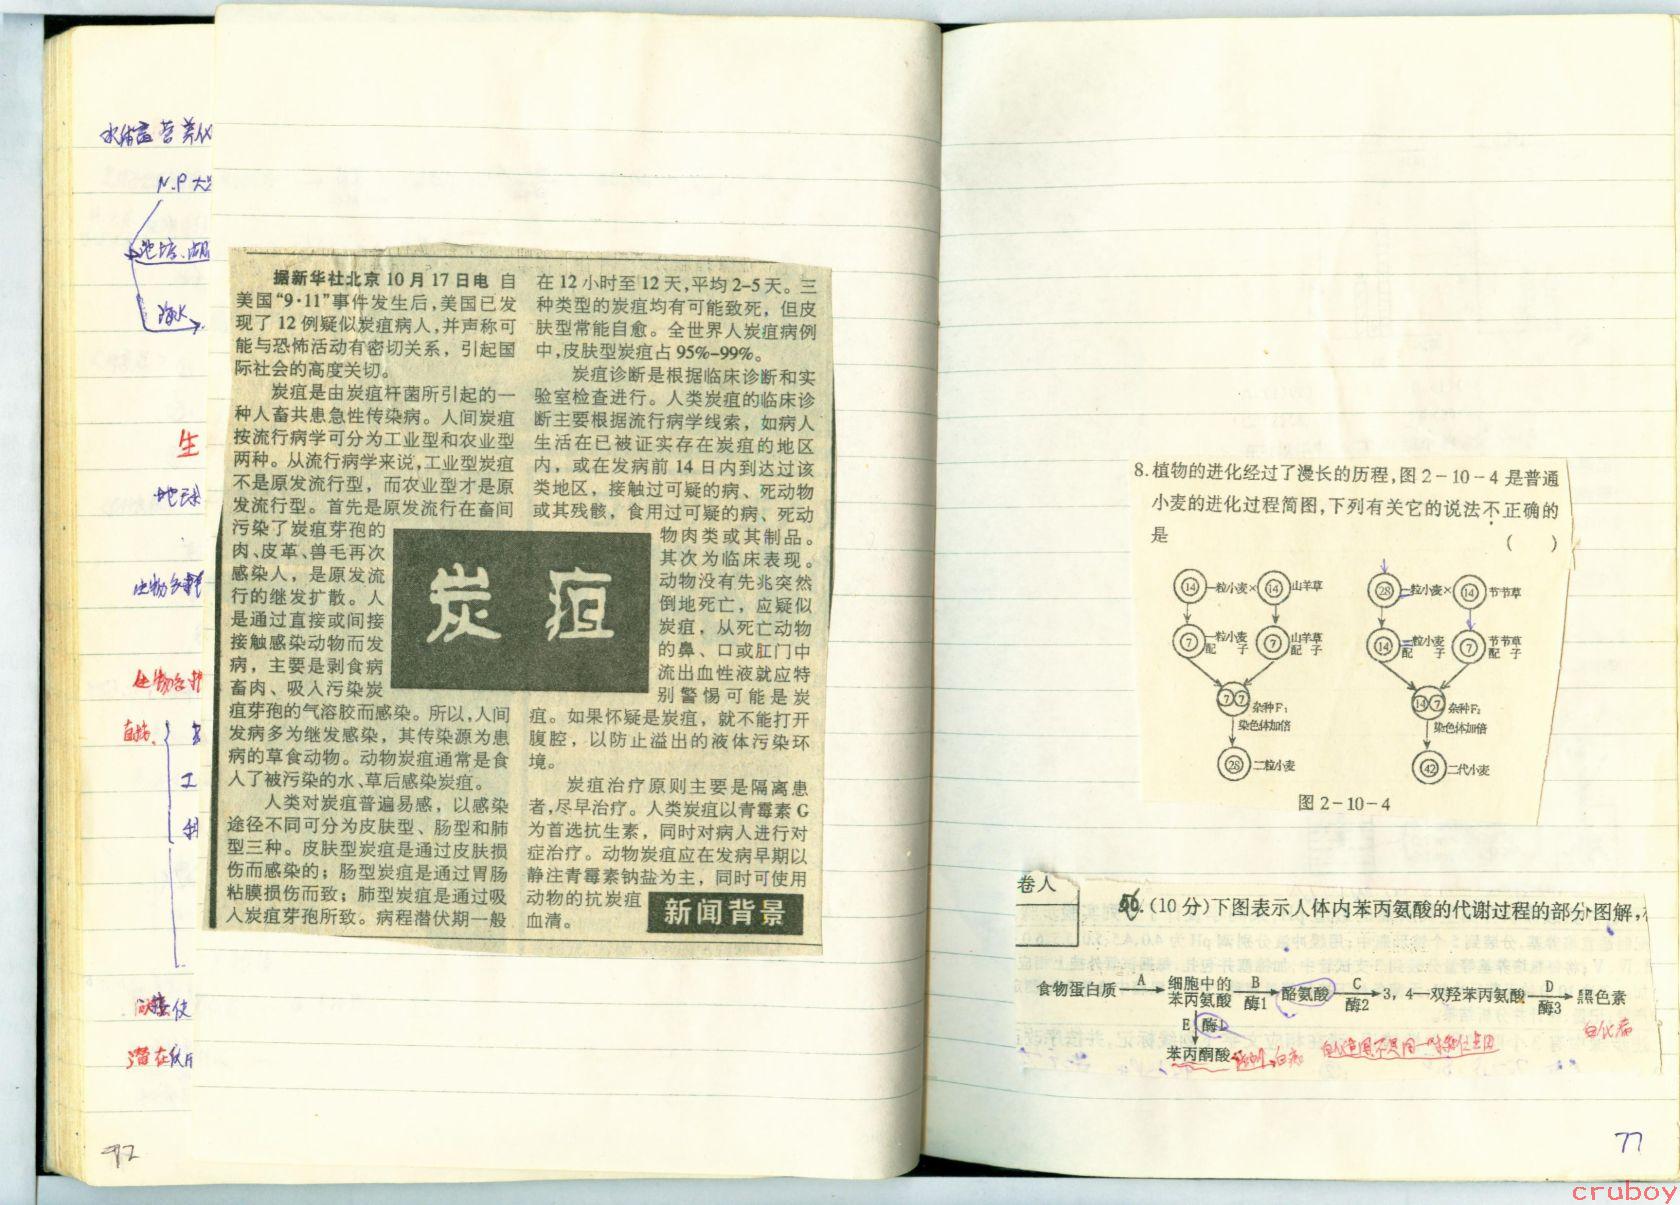 水体富营养化
N.P
池塘、湖
海水
生
地球
生物多样
生物
直接
工
间接使
潜在
92
据新华社北京10月17日电 自
美国“9·11”事件发生后,美国已发
现了12例疑似炭疽病人,并声称可
能与恐怖活动有密切关系，引起国
际社会的高度关切。
炭疽是由炭疽杆菌所引起的一
种人畜共患急性传染病。人间炭疽
按流行病学可分为工业型和农业型
两种。从流行病学来说,工业型炭疽
不是原发流行型，而农业型才是原
发流行型。首先是原发流行在畜间
污染了炭疽芽孢的
肉、皮革、兽毛再次
感染人，是原发流
行的继发扩散。人
是通过直接或间接
接触感染动物而发
病，主要是剥食病
畜肉、吸入污染炭
疽芽孢的气溶胶而感染。所以,人间
发病多为继发感染，其传染源为患
病的草食动物。动物炭疽通常是食
入了被污染的水、草后感染炭疽。
人类对炭疽普遍易感，以感染
途径不同可分为皮肤型、肠型和肺
型三种。皮肤型炭疽是通过皮肤损
伤而感染的；肠型炭疽是通过胃肠
粘膜损伤而致；肺型炭疽是通过吸
入炭疽芽孢所致。病程潜伏期一般
炭疽
在12小时至12天,平均2-5天。三
种类型的炭疽均有可能致死，但皮
肤型常能自愈。全世界人炭疽病例
中,皮肤型炭疽占95%-99%。
炭疽诊断是根据临床诊断和实
验室检查进行。人类炭疽的临床诊
断主要根据流行病学线索，如病人
生活在已被证实存在炭疽的地区
内，或在发病前14日内到达过该
类地区，接触过可疑的病、死动物
或其残骸，食用过可疑的病、死动
物肉类或其制品。
其次为临床表现。
动物没有先兆突然
倒地死亡，应疑似
炭疽，从死亡动物
的鼻、口或肛门中
流出血性液就应特
别警惕可能是炭
疽。如果怀疑是炭疽，就不能打开
腹腔，以防止溢出的液体污染环
境。
炭疽治疗原则主要是隔离患
者,尽早治疗。人类炭疽以青霉素G
为首选抗生素，同时对病人进行对
症治疗。动物炭疽应在发病早期以
静注青霉素钠盐为主，同时可使用
动物的抗炭疽
血清。
新闻背景
8.植物的进化经过了漫长的历程,图2-10-4是普通
小麦的进化过程简图,下列有关它的说法不正确的
是 (  )
14 一粒小麦× 14 山羊草 28 二粒小麦× 14 节节草
7 一粒小麦配子 7 山羊草配子 14 二粒小麦配子 7 节节草配子
7 7 杂种F₁ 14 7 杂种F₂
染色体加倍 染色体加倍
28 二粒小麦 42 二代小麦
图2-10-4
卷人
50.(10分)下图表示人体内苯丙氨酸的代谢过程的部分图解,
食物蛋白质 A 细胞中的苯丙氨酸 B 酶1 酪氨酸 C 酶2 3,4—双羟苯丙氨酸 D 酶3 黑色素
E 酶4
苯丙酮酸
白化病
77
cruboy